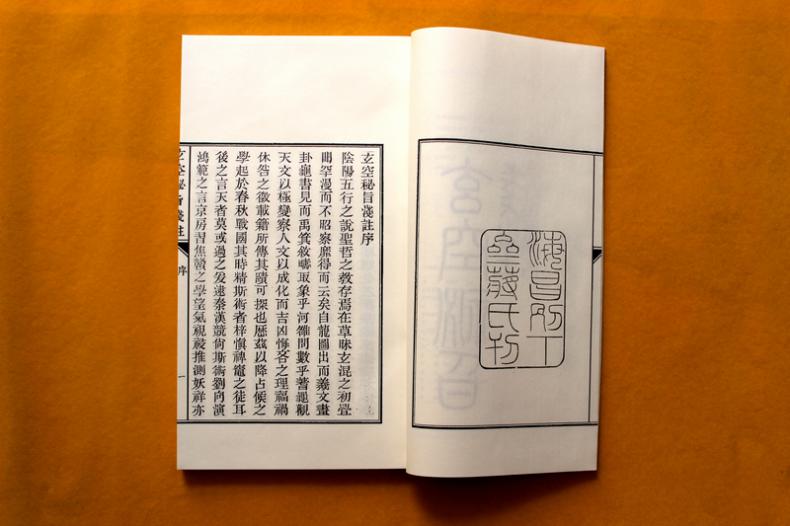 海昌別下
齋蔣氏刊
玄空秘旨淺註序
陰陽五行之說聖哲之教存焉在草昧玄混之初疊
闇罕漫而不昭察靡得而云矣自龍圖出而羲文畫
卦龜書見而禹箕敘疇取象乎河雒問數乎蓍龜觀
天文以極變察人文以成化而吉凶悔吝之理福禍
休咎之徵載籍所傳其賾可探也歷茲以降占候之
學起於春秋戰國其時精斯術者梓慎裨竈之徒耳
後之言天者莫或過之爰逮秦漢競尚斯術劉向演
鴻範之言京房習焦贛之學望氣視祲推測妖祥亦
玄空秘旨淺註
序
一